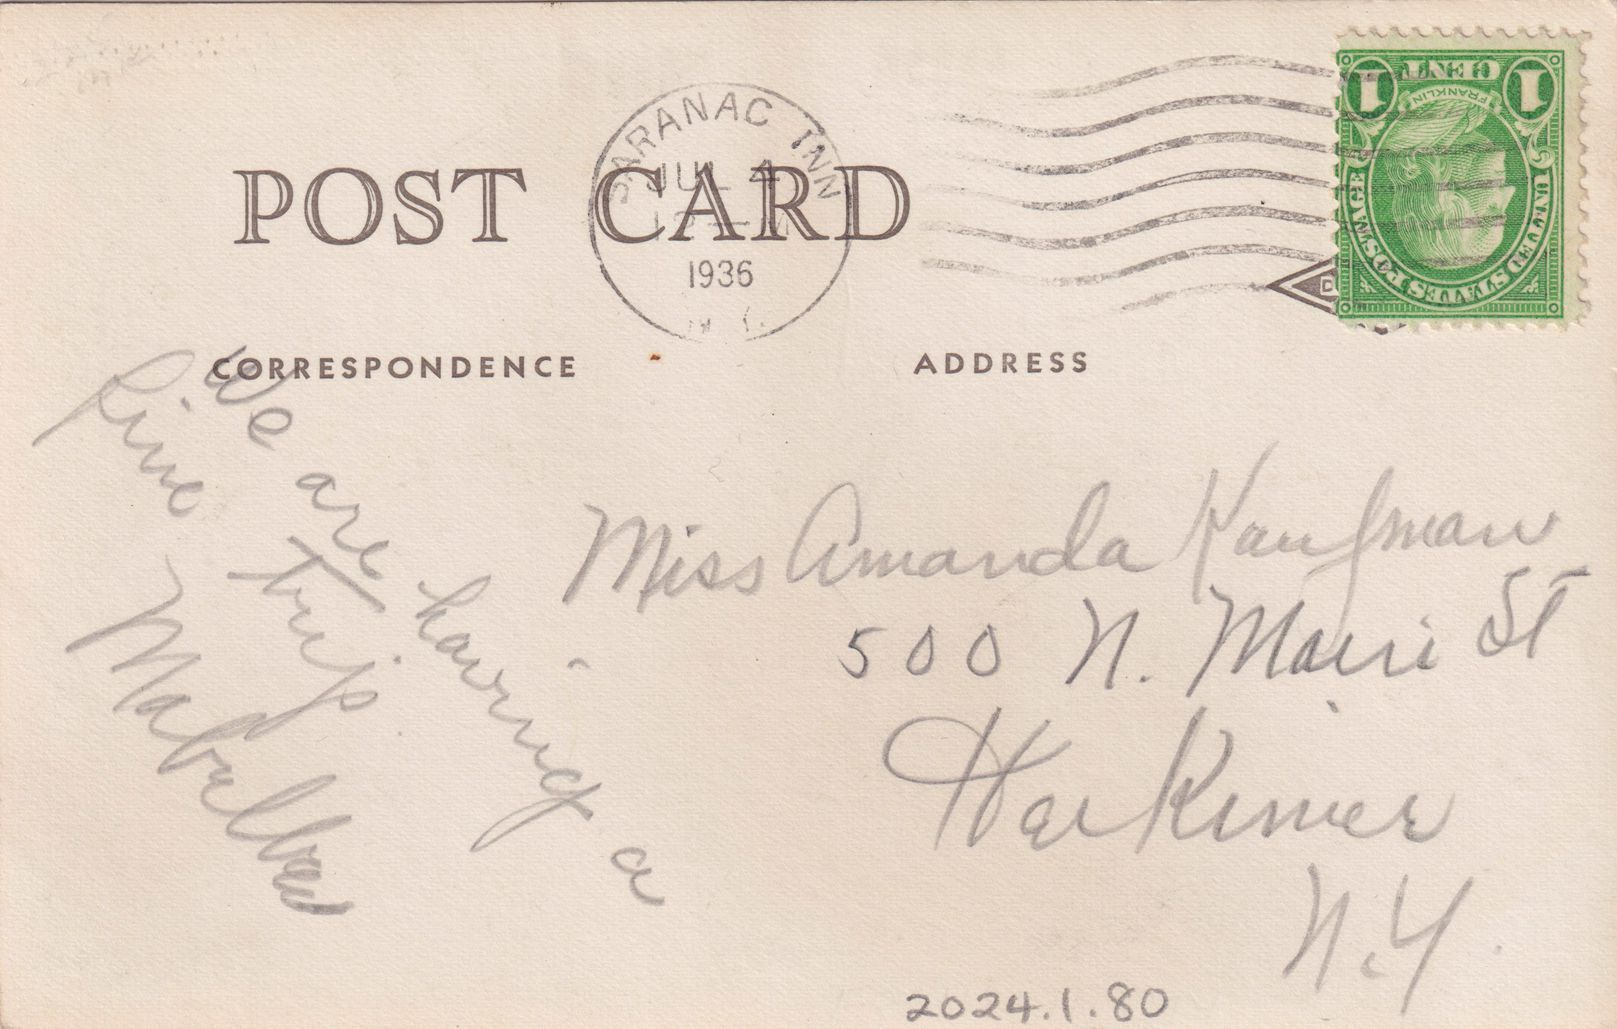 SARANAC INN
JUL 4
1936
N.Y.
1 CENT 1
FRANKLIN
UNITED STATES POSTAGE
POST CARD
CORRESPONDENCE
ADDRESS
We are having a
fine trip.
Miss Amanda Kaufman
500 N. Main St
Herkimer
N.Y.
2024.1.80